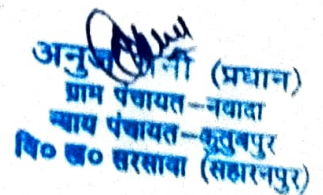 अनुज सैनी (प्रधान)
ग्राम पंचायत-नवादा
न्याय पंचायत-कुतुबपुर
वि० ख० सरसावा (सहारनपुर)